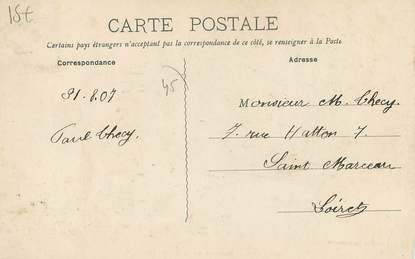 15€
CARTE POSTALE
Certains pays étrangers n'acceptant pas la correspondance de ce côté, se renseigner à la Poste
Correspondance
Adresse
45
31.8.07
Paul Checy.
Monsieur M. Checy.
7. rue Hatton 7.
Saint Marceau
Loiret